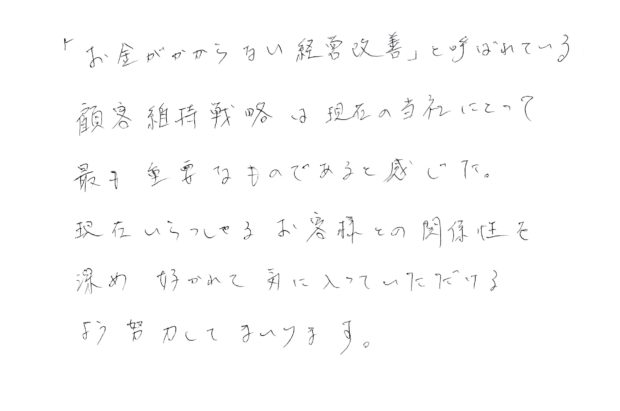 「お金がかからない経営改善」と呼ばれている
顧客維持戦略は現在の当社にとって
最も重要なものであると感じた。
現在いらっしゃるお客様との関係性を
深め好かれて気に入っていただける
よう努力してまいります。